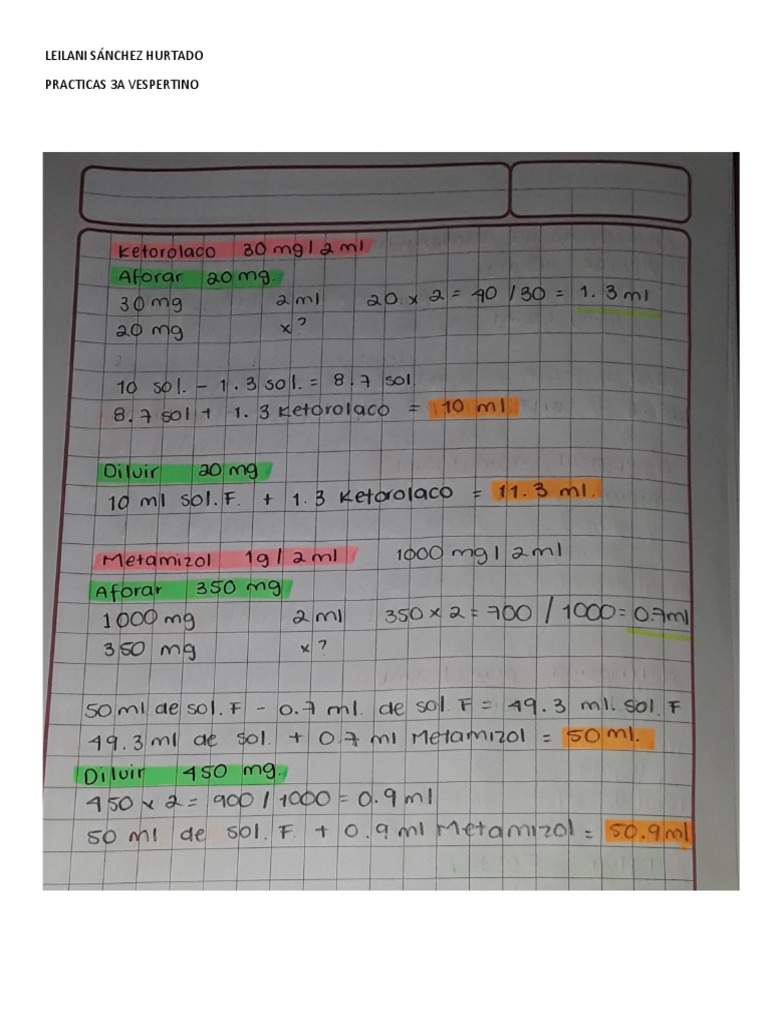 LEILANI SÁNCHEZ HURTADO
PRACTICAS 3A VESPERTINO
Ketorolaco 30 mg / 2 ml
Aforar 20 mg.
30 mg 2 ml 20 x 2 = 40 / 30 = 1.3 ml
20 mg x ?
10 sol. - 1.3 sol. = 8.7 sol.
8.7 sol + 1.3 Ketorolaco = 10 ml
Diluir 20 mg
10 ml sol. F. + 1.3 Ketorolaco = 11.3 ml.
Metamizol 1g / 2 ml 1000 mg / 2 ml
Aforar 350 mg
1000 mg 2 ml 350 x 2 = 700 / 1000 = 0.7 ml
350 mg x ?
50 ml de sol. F - 0.7 ml. de sol. F = 49.3 ml. sol. F
49.3 ml de sol. + 0.7 ml Metamizol = 50 ml.
Diluir 450 mg.
450 x 2 = 900 / 1000 = 0.9 ml
50 ml de sol. F. + 0.9 ml Metamizol = 50.9 ml